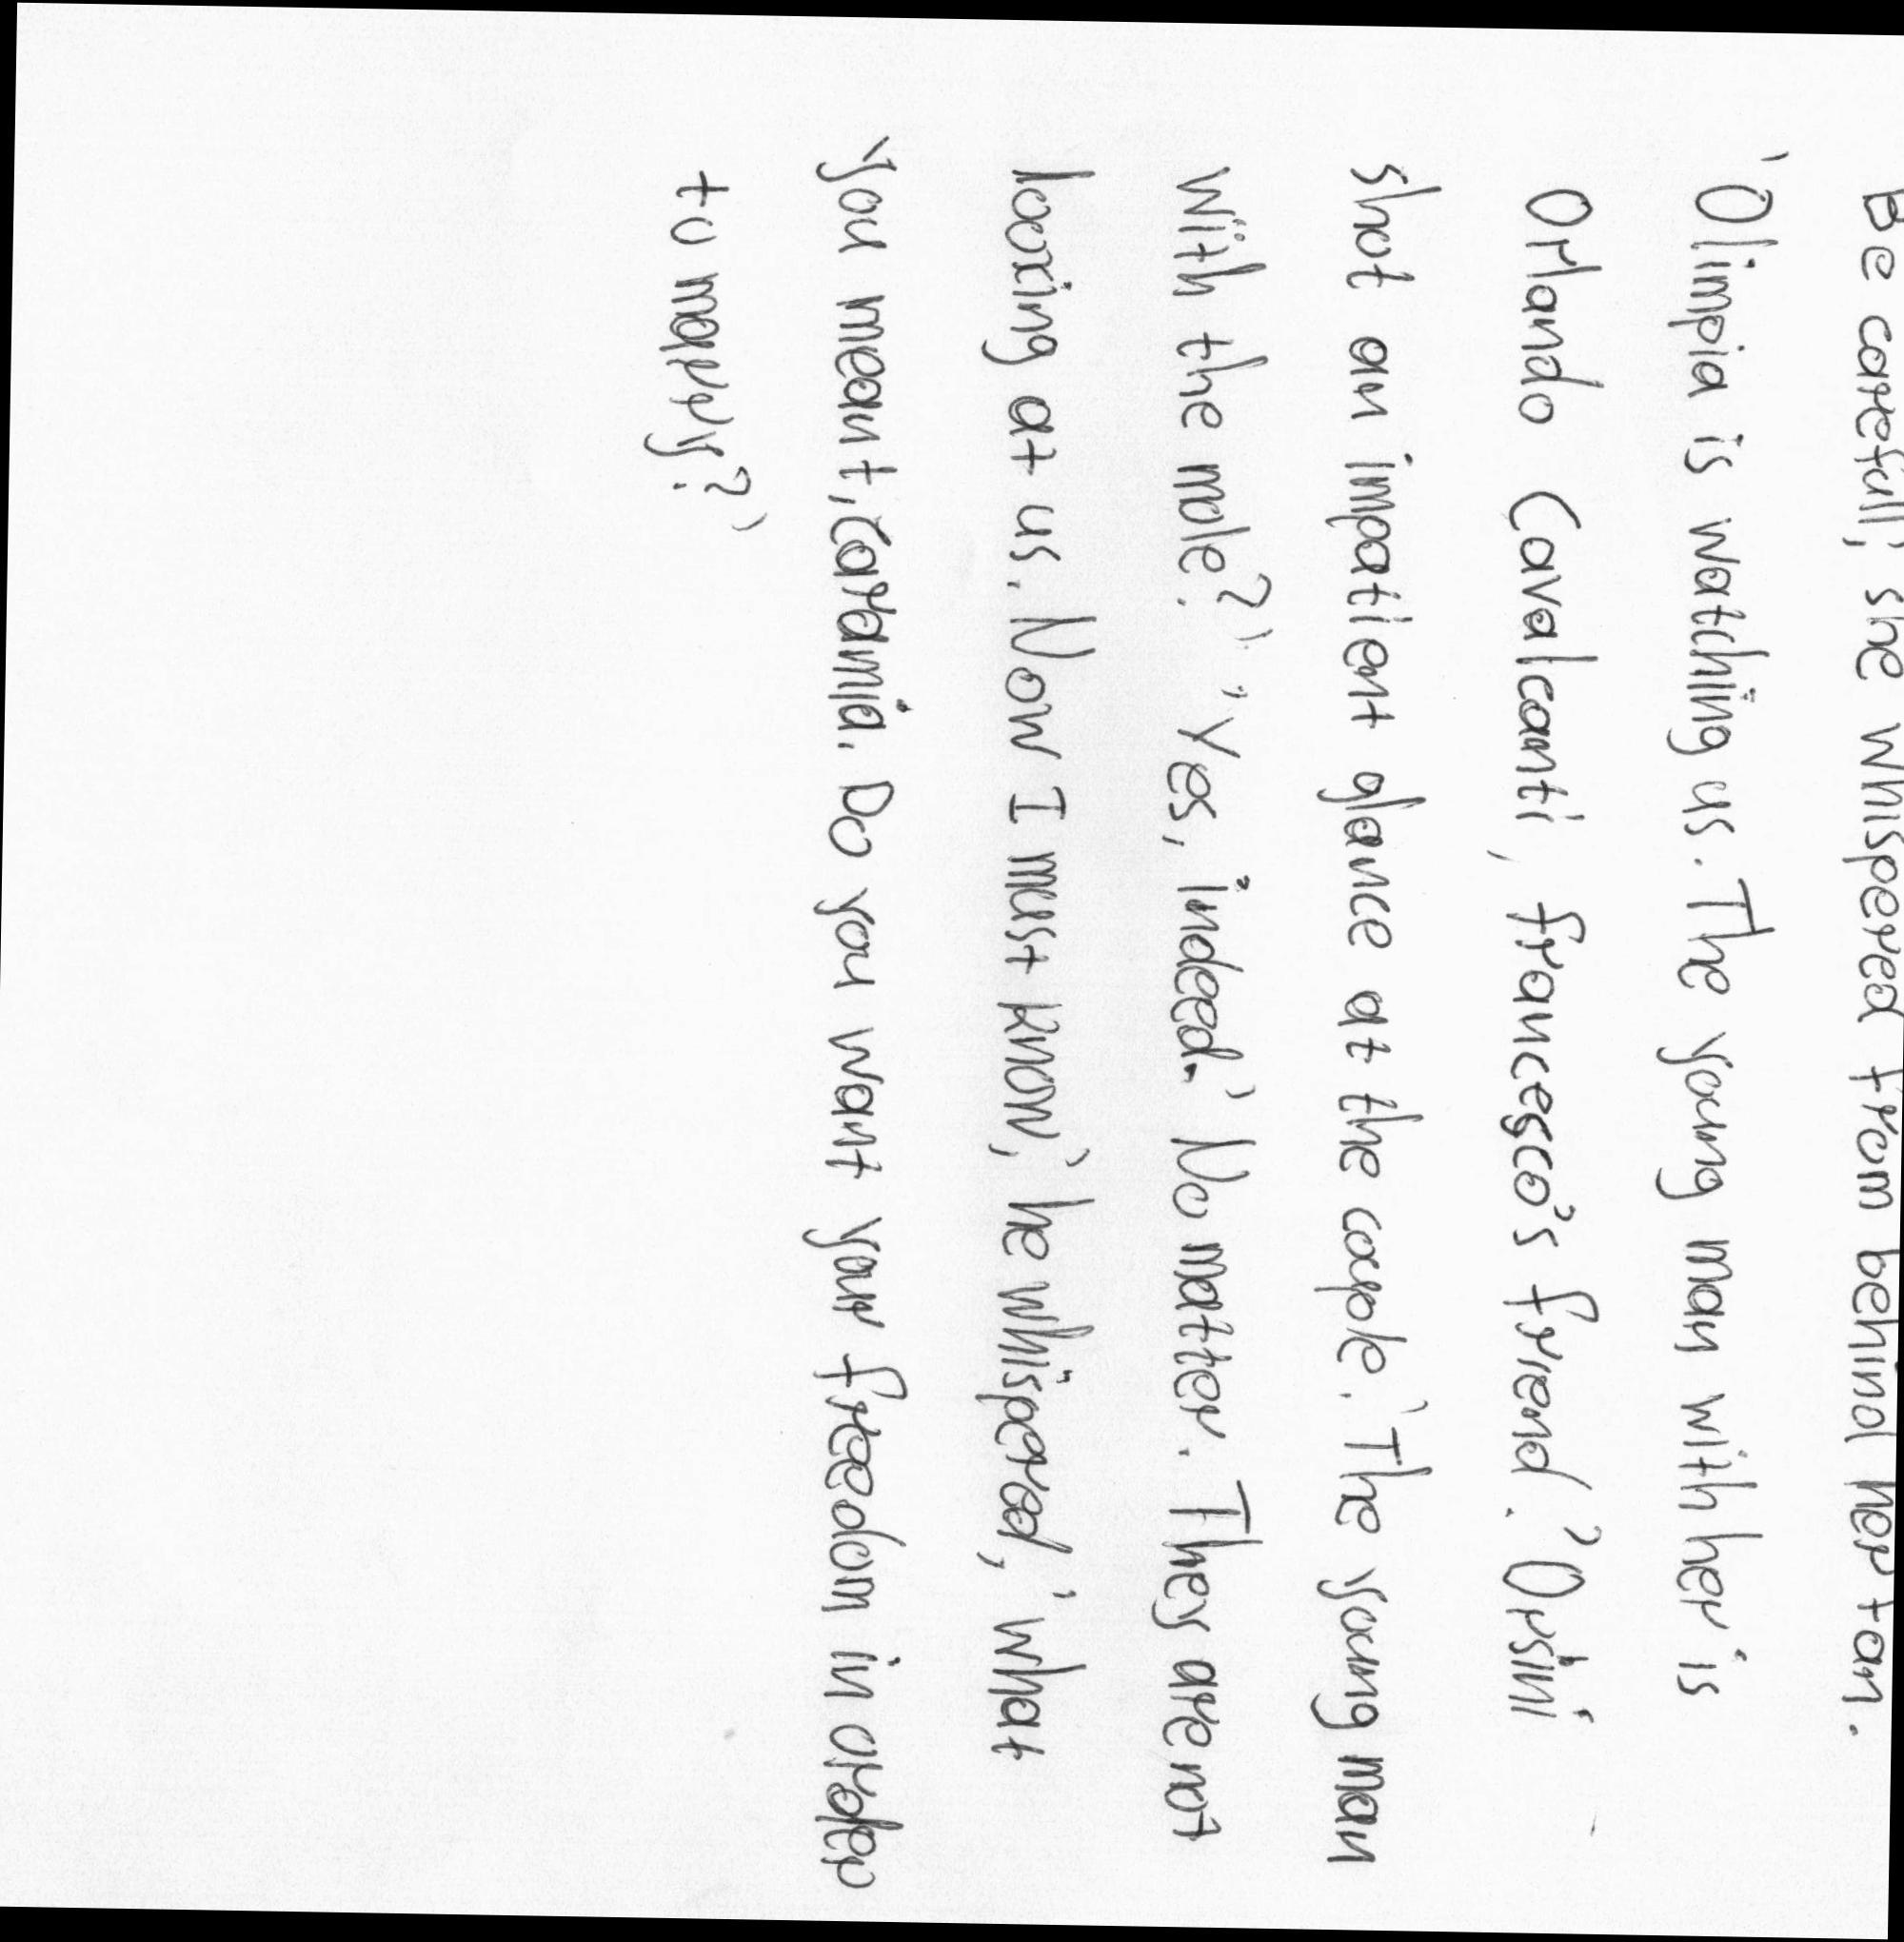 Be careful,' she whispered from behind her fan.
'Olimpia is watching us. The young man with her is
Orlando Cavalcanti, francesco's friend.' Orsini
shot an impatient glance at the couple. 'The young man
with the mole?' 'Yes, indeed.' No matter. They are not
looking at us. Now I must know,' he whispered, 'what
you meant, Caramia. Do you want your freedom in order
to marry?'